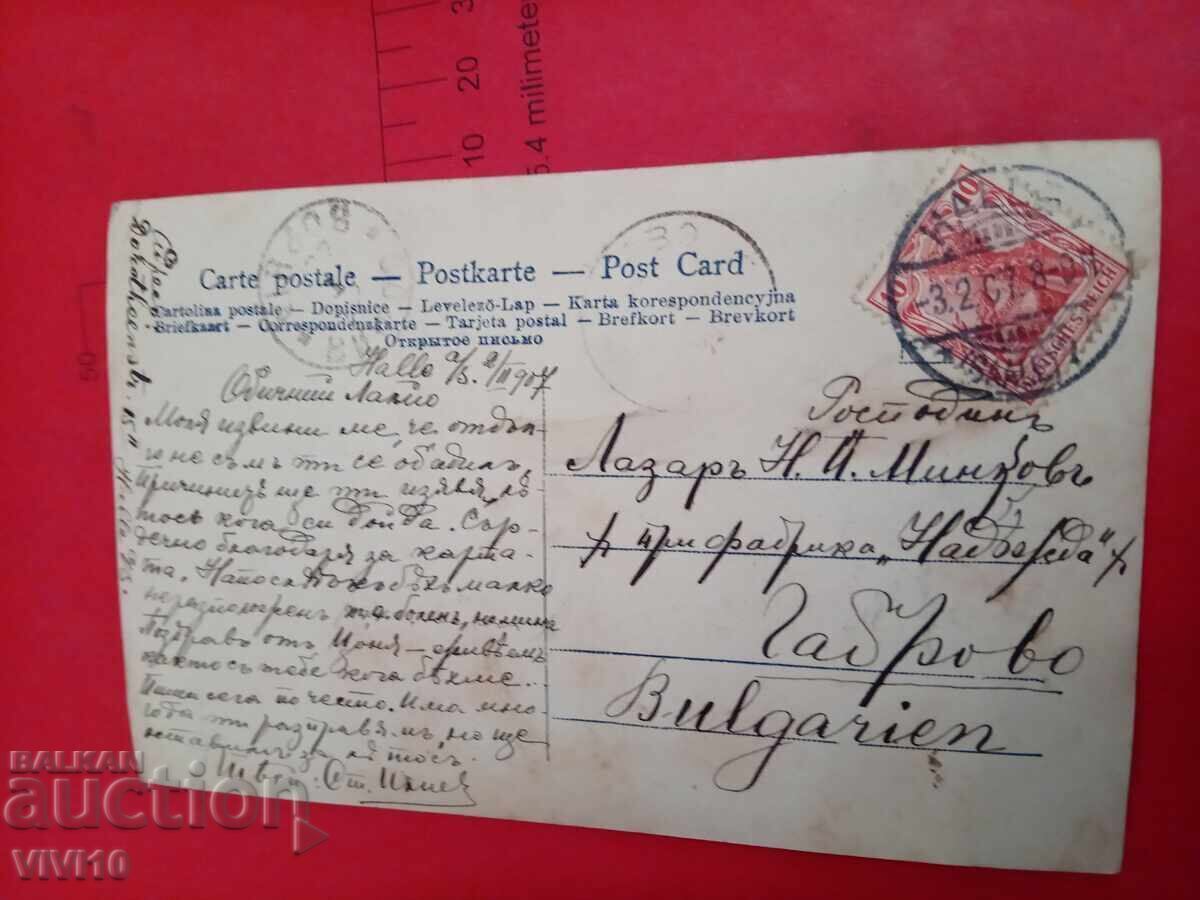 30
20
10
5.4 milimete
50
Carte postale — Postkarte — Post Card
Cartolina postale — Dopisnice — Levelező-Lap — Karta korespondencyjna
Briefkaart — Correspondenzkarte — Tarjeta postal — Brefkort — Brevkort
Открытое письмо
Halle a/S. 2/II 907
Обичний Лальо
Моля извини ме, че отдав-
на не съмъ ти се обадилъ.
Причинитѣ ще ти изявя лѣ-
тосъ кога си дойда. Сър-
дечно благодаря за карта-
та. Напослѣдъкъ бѣхъ малко
неразположенъ, т.е. боленъ, но мина
Поздравъ от Цоня —
както съ тебе кога бѣхме.
Пиши сега по често. Има мно-
го да ти разправямъ, но ще
оставимъ за лѣтосъ.
Твой: Ст.
10
10
DEUTSCHES REICH
HALLE
-3.2.07. 8-9
Господинъ
Лазаръ Н. П. Минковъ
при фабрика „Надѣжда"
Габрово
Bulgarien
BALKAN
auction
VIVI10